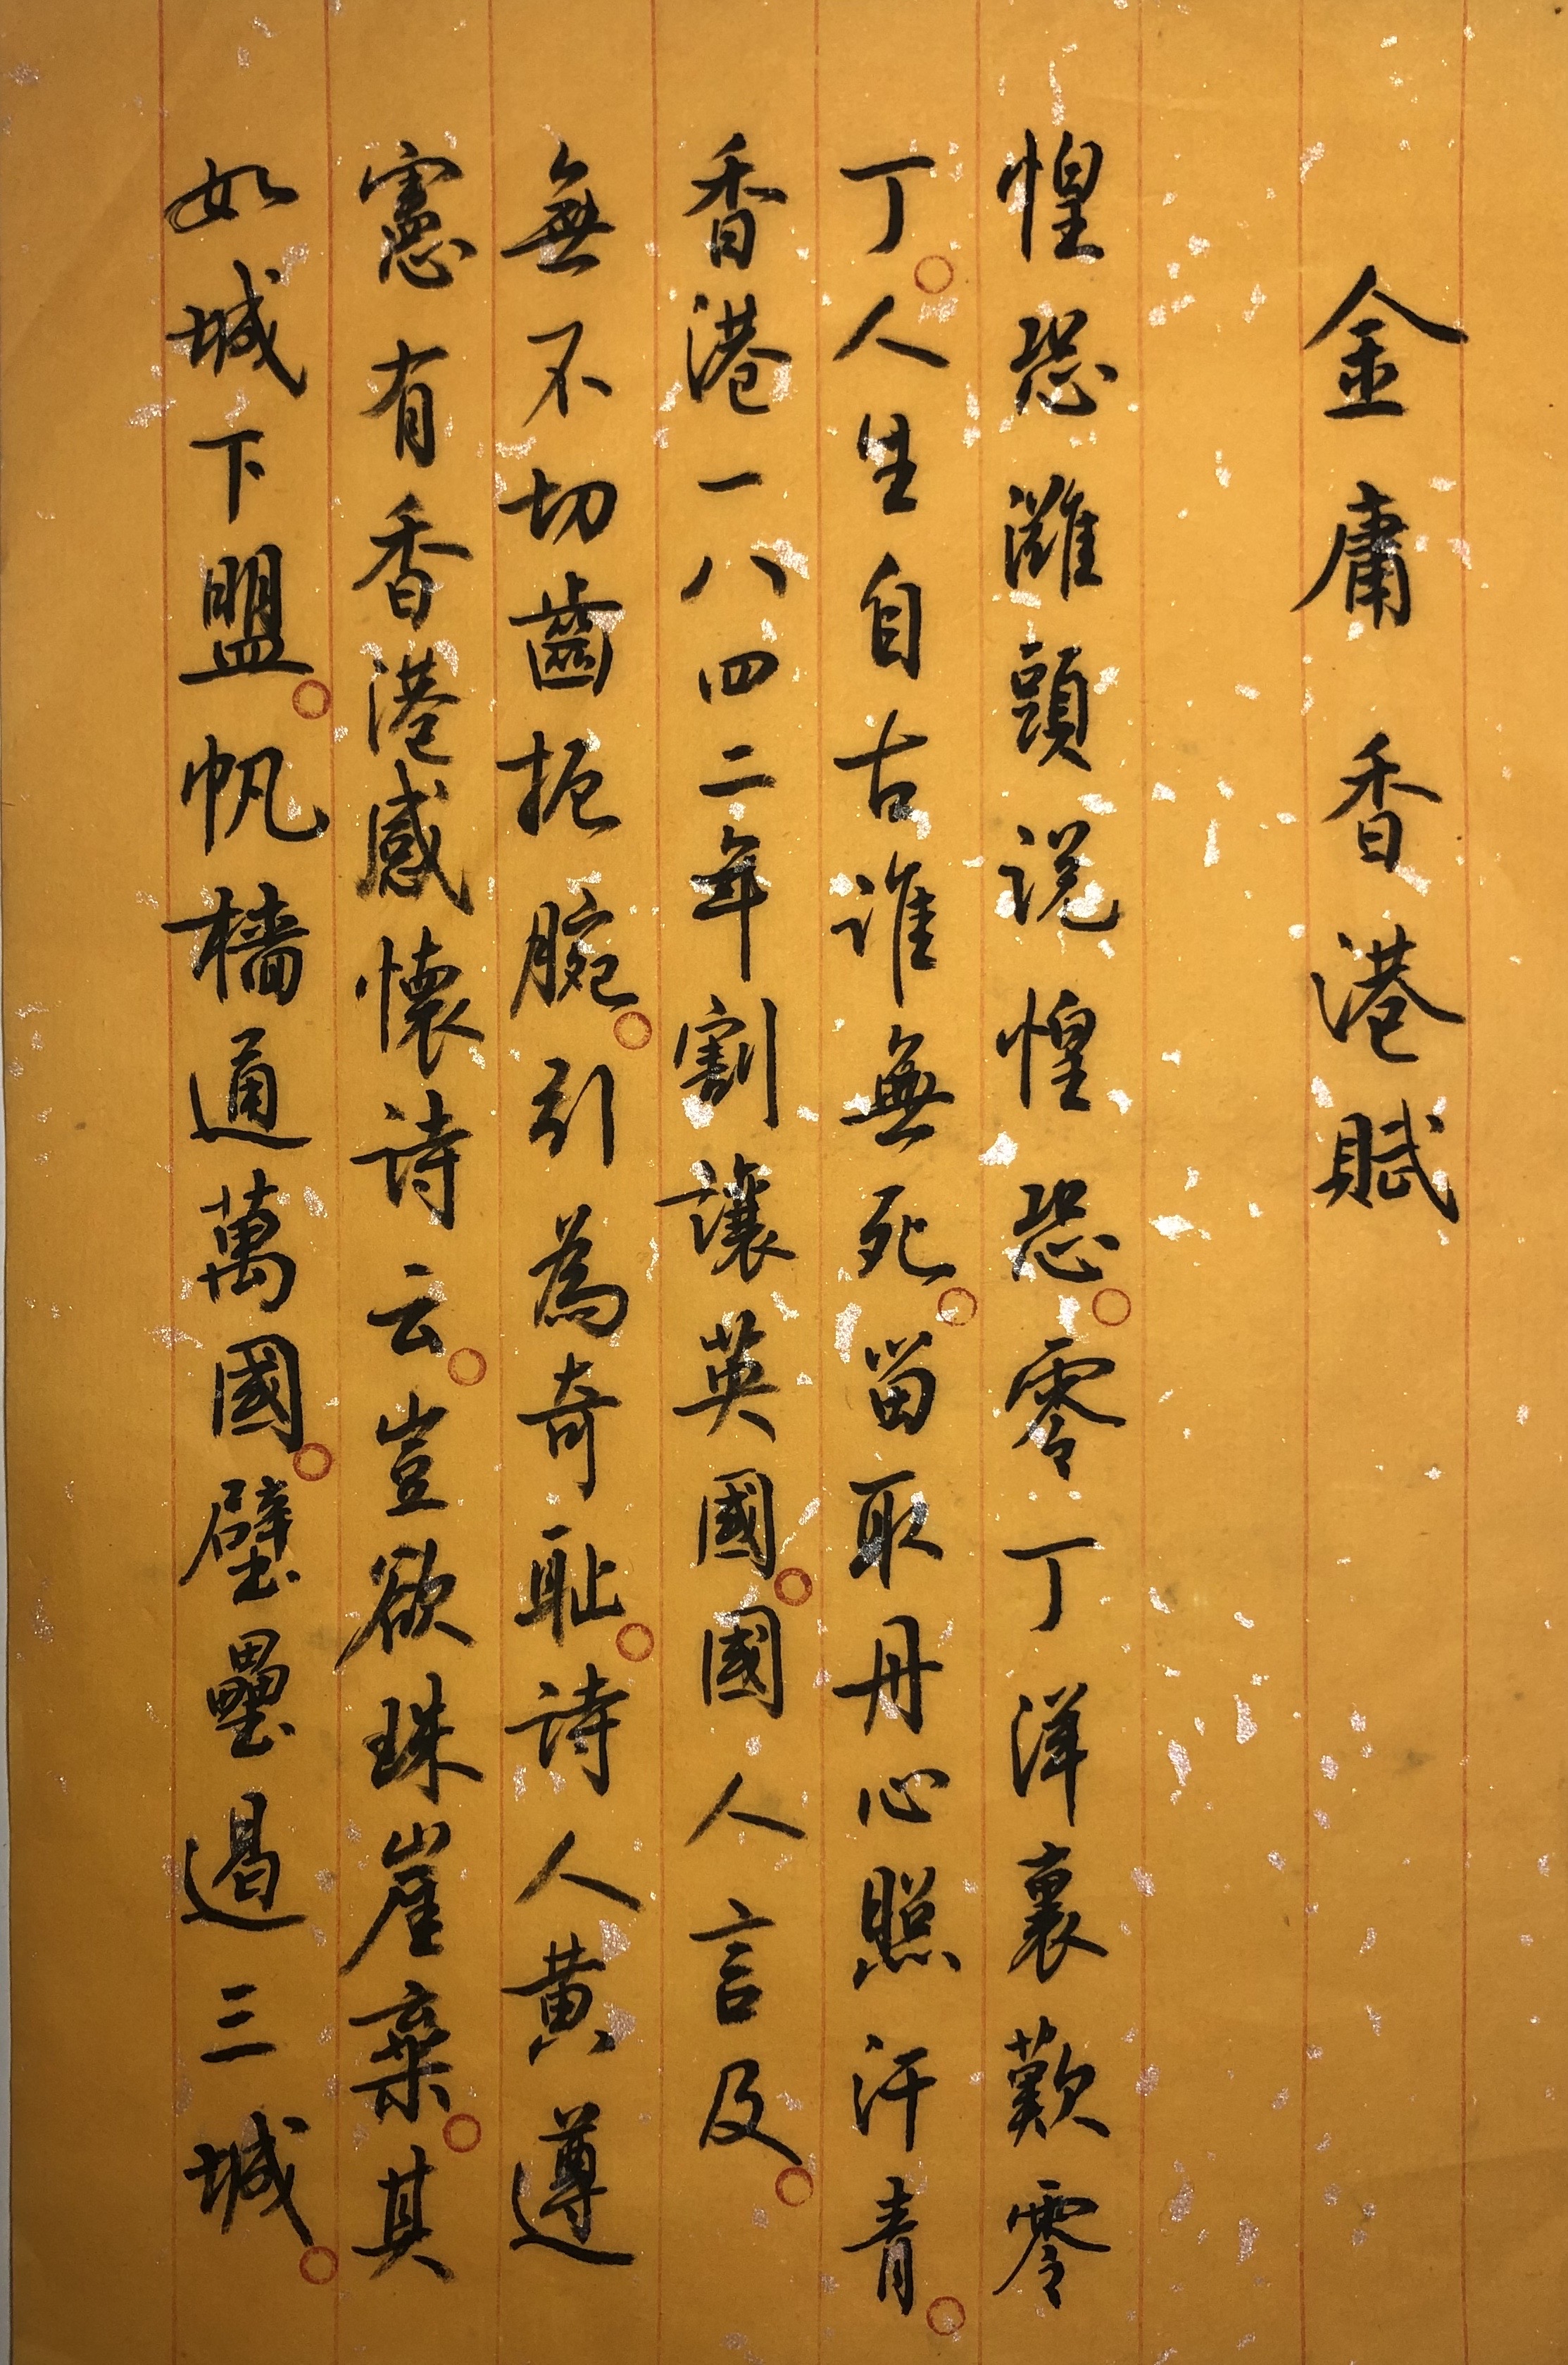 金庸 香港賦
惶恐灘頭說惶恐。零丁洋裏歎零
丁。人生自古誰無死。留取丹心照汗青。
香港一八四二年割讓英國。國人言及。
無不切齒扼腕。引為奇恥。詩人黃遵
憲有香港感懷詩云。豈欲珠崖棄。其
如城下盟。帆檣通萬國。壁壘遏三城。